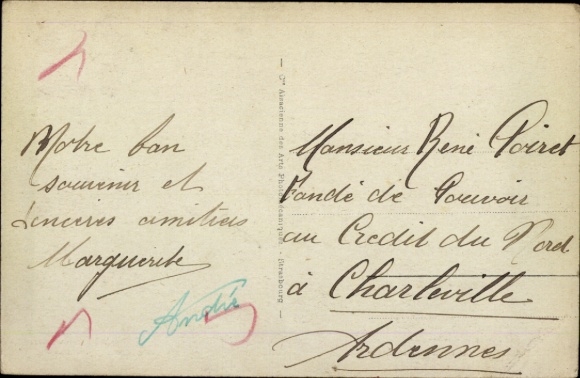 Notre bon
souvenir et
sincères amitiés
Marguerite
André
Monsieur René Poiret
Fondé de Pouvoir
au Credit du Nord
à Charleville
Ardennes
Alsaciennes des Arts Photomécaniques - Strasbourg